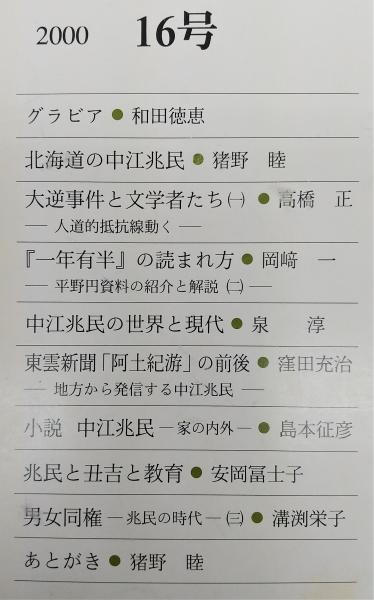 2000 16号
グラビア ● 和田徳恵
北海道の中江兆民 ● 猪野 睦
大逆事件と文学者たち㈠ ● 高橋 正
― 人道的抵抗線動く ―
『一年有半』の読まれ方 ● 岡﨑 一
― 平野円資料の紹介と解説 ㈡ ―
中江兆民の世界と現代 ● 泉 淳
東雲新聞「阿土紀游」の前後 ● 窪田充治
― 地方から発信する中江兆民 ―
小説 中江兆民 ―家の内外― ● 島本征彦
兆民と丑吉と教育 ● 安岡冨士子
男女同権 ―兆民の時代― ㈢ ● 溝渕栄子
あとがき ● 猪野 睦